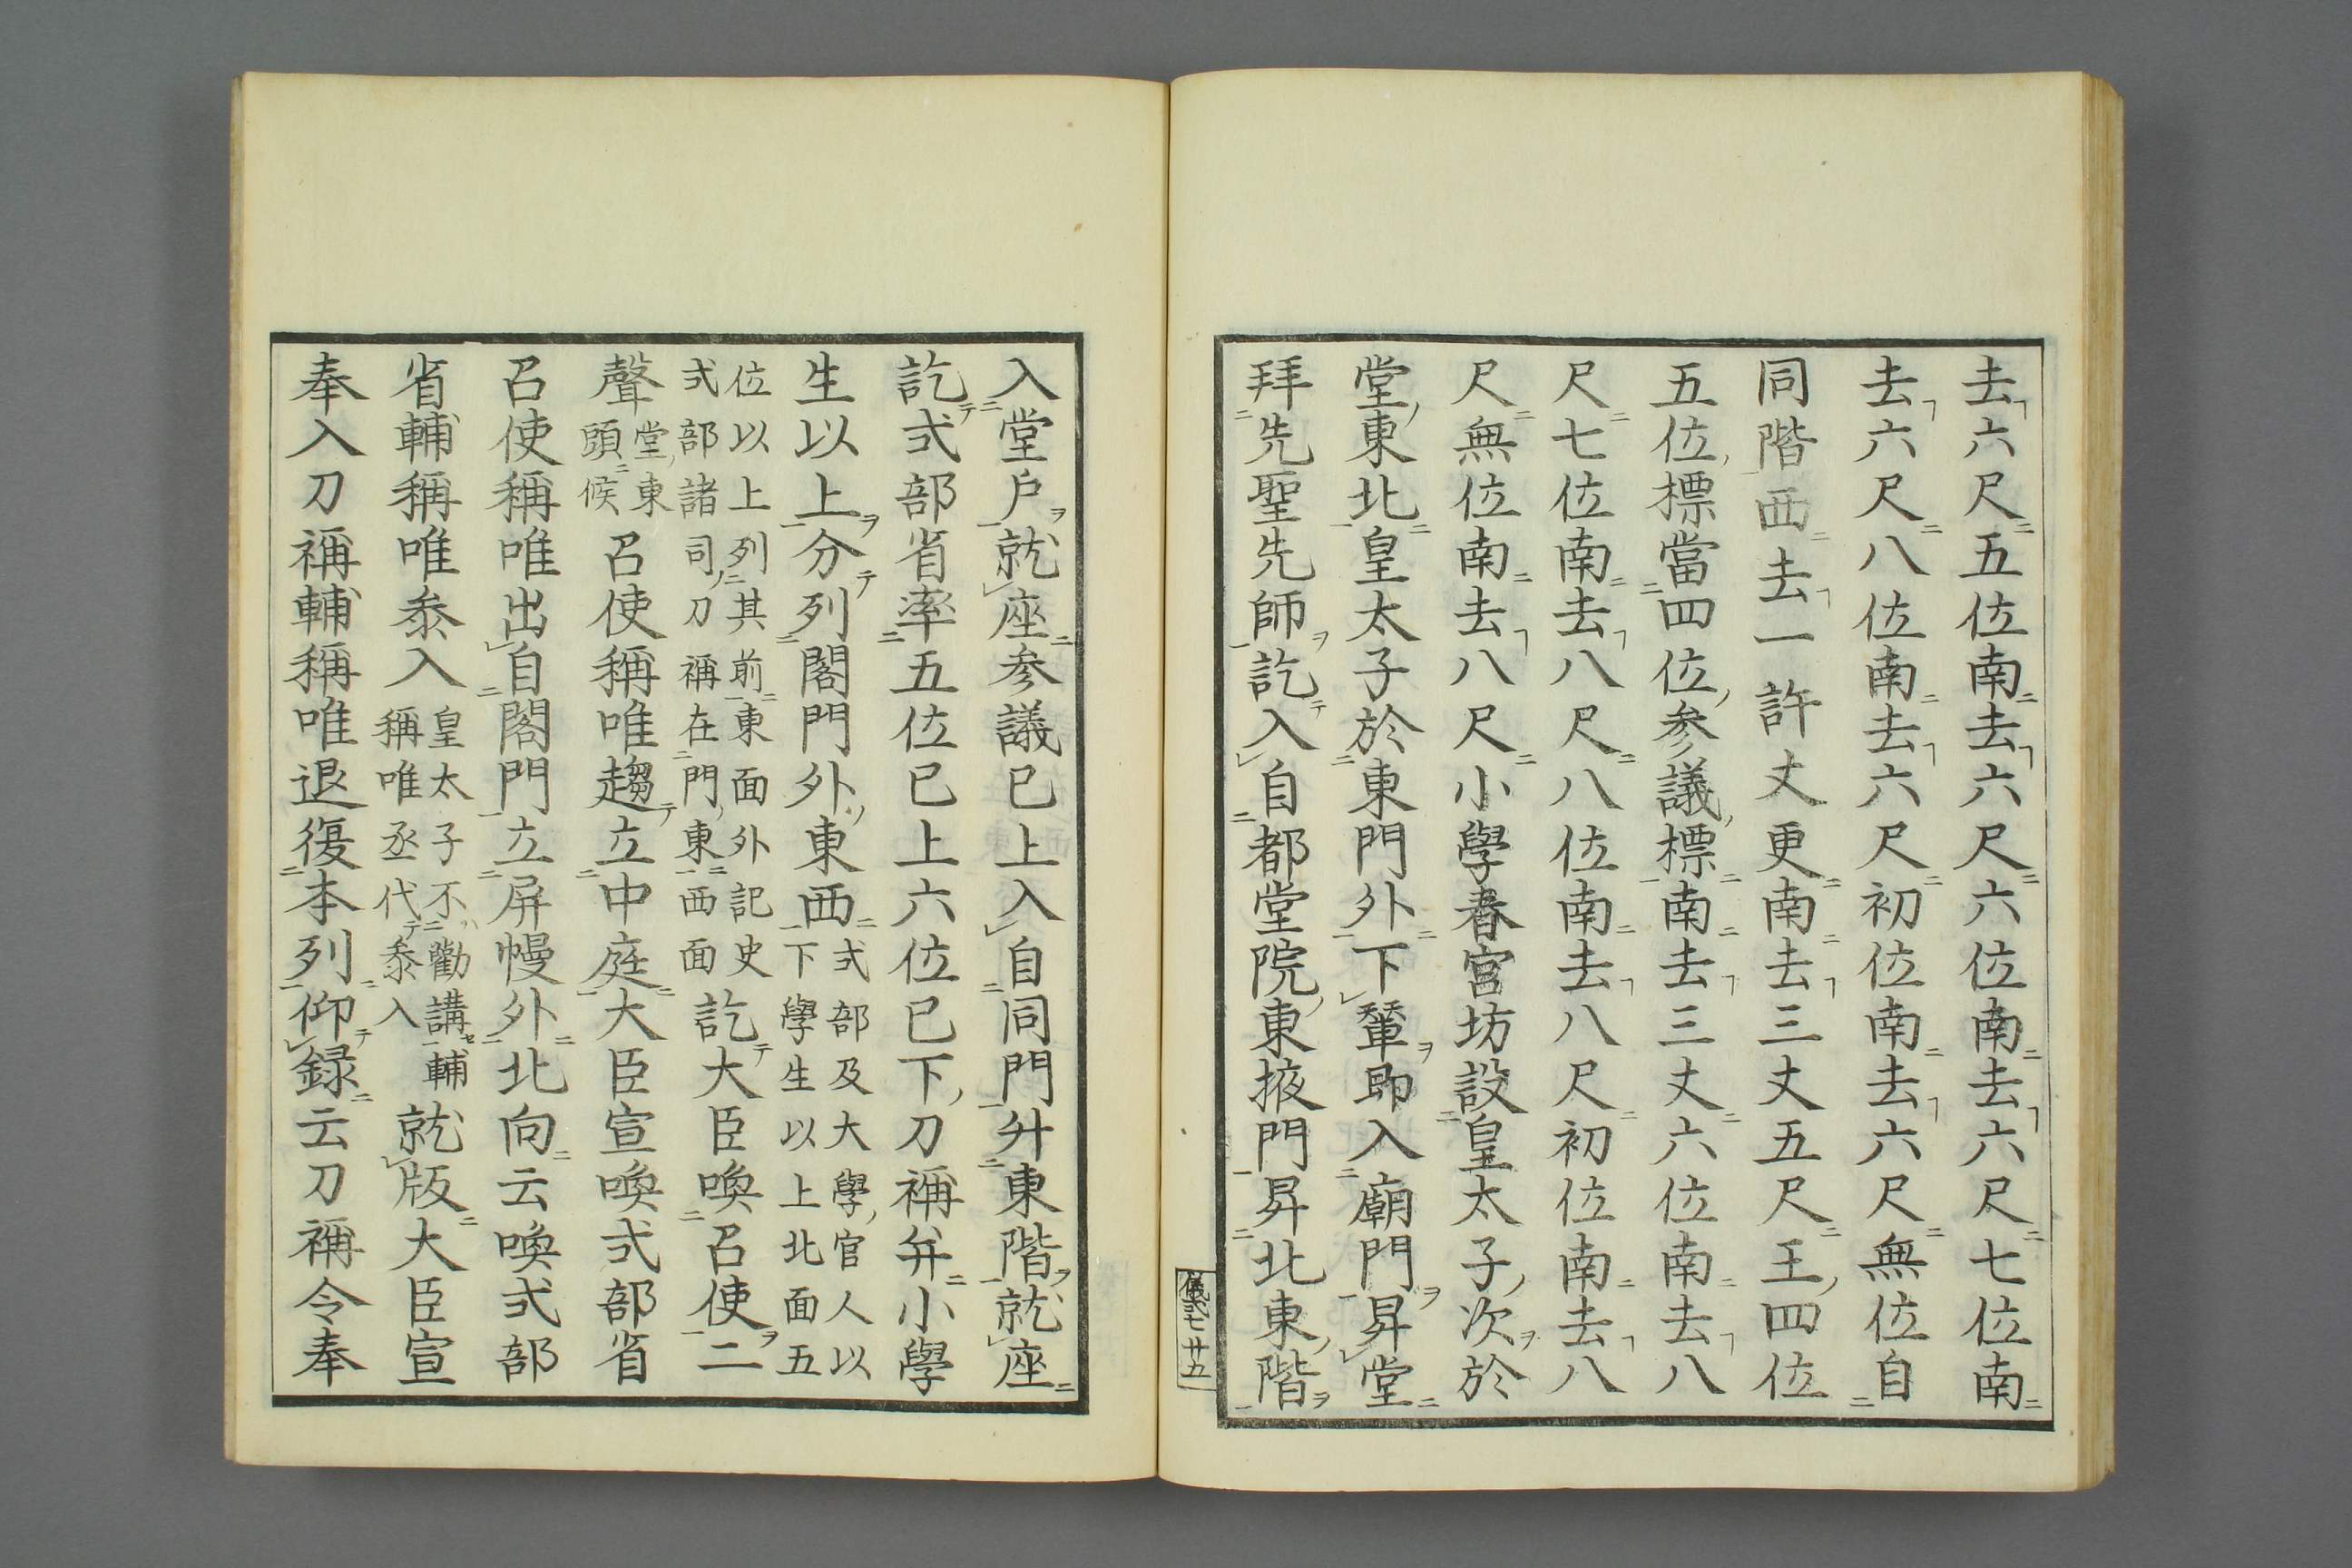 去六尺五位南去六尺六位南去六尺七位南
去六尺八位南去六尺初位南去六尺無位自
同階西去一許丈更南去三丈五尺王四位
五位標當四位参議標南去三丈六位南去八
尺七位南去八尺八位南去八尺初位南去八
尺無位南去八尺小學春宮坊設皇太子次於
堂東北皇太子於東門外下輦即入廟門昇堂
拜先聖先師訖入自都堂院東掖門昇北東階
儀式七 廿五
入堂戸就座参議已上入自同門升東階就座
訖式部省率五位已上六位已下刀禰并小學
生以上分列閤門外東西式部及大學官人以下學生以上北面五
位以上列其前東面外記史式部諸司刀禰在門東西面訖大臣喚召使二
聲堂東頭候召使稱唯趨立中庭大臣宣喚式部省
召使稱唯出自閤門立屏幔外北向云喚式部
省輔稱唯叅入皇太子不勸講輔稱唯丞代叅入就版大臣宣
奉入刀禰輔稱唯退復本列仰録云刀禰令奉